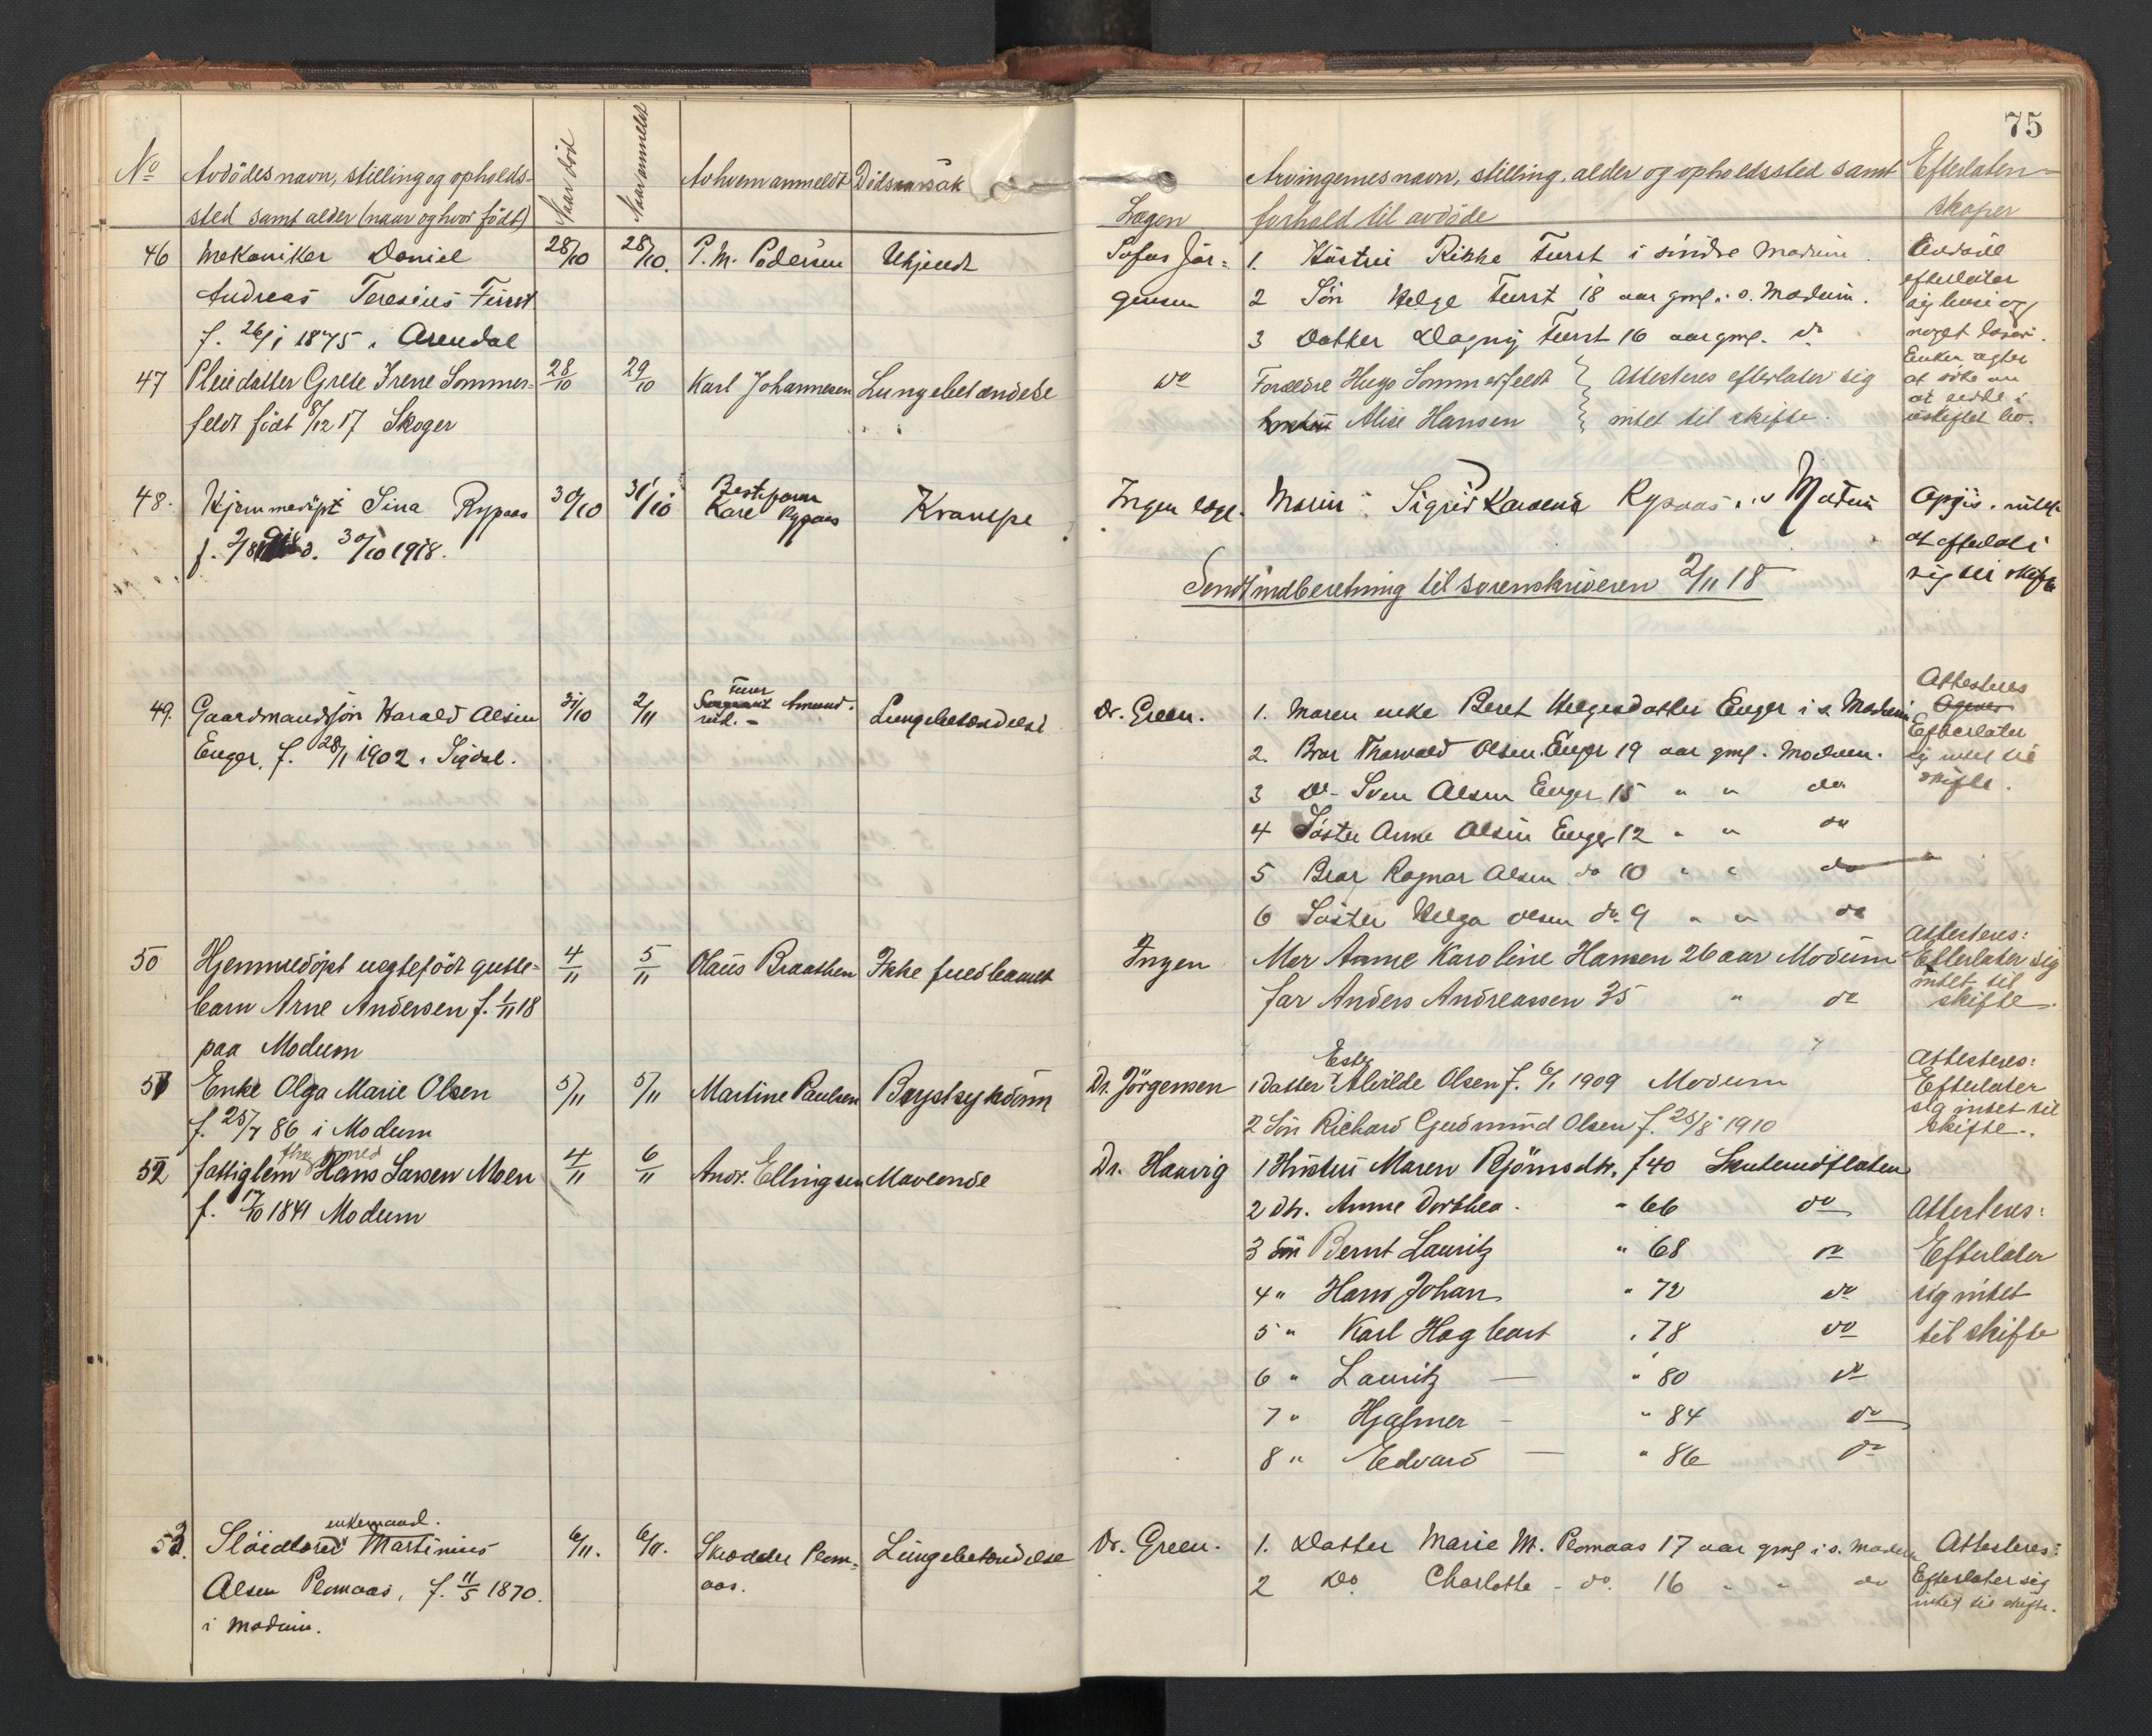 75
No Avdödes navn, stilling og opholds- Naar död Naar anmeldt Av hvem anmeldt Dödsaarsak Lægen Arvingernes navn, stilling, alder og opholdssted samt Efterlaten-
sted samt alder (naar og hvor födt) forhold til avdöde skaper
46 Mekaniker Daniel 28/10 28/10. P. M. Pedersen Ukjendt Sofus Jör- 1. Hustru Rikke Furst i söndre Modum.
Andreas Teresius Fürst gensen 2 Sön Helge Furst 18 aar gml. i s. Modum. efterlater sig hus og
f. 26/1 1875 i Arendal 3 Datter Dagny Furst 16 aar gml. do noget lösöre.
Enken agter at söke om at sidde i uskiftet bo.
47 Pleiedatter Grete Irene Sommer- 28/10 29/10 Karl Johannesen Lungebetændelse do Forældre Hugo Sommerfeldt } Attesteres efterlater sig
feldt födt 8/12 17 Skoger Alise Hansen } intet til skifte.
48. Hjemmedöpt Sina Rypaas 30/10 31/10 Bestefar Kare Rypaas Krampe Ingen læge. Moren: Sigrid Rypaas i s Modum Opgis intet
f. 2/8 18 d. 30/10 1918. at efterlate sig til skifte
Sendt indberetning til sorenskriveren 2/11 18
49. Gaardmandssön Harald Olsen 31/10 2/11 Furer Amund- Lungebetændelse Dr. Green. 1. Moren enke Beret Helgesdatter Enger i s. Modum Attesteres
Enger, f. 28/1 1902 i Sigdal. rud. - 2. Bror Thorvald Olsen Enger 19 aar gml. Modum. Efterlater
3 Do- Sven Olsen Enger 15 " " do sig intet til skifte.
4 Söster Anne Olsen Enger 12 " " do
5 Bror Ragnar Olsen do 10 " " do
6 Söster Helga Olsen do. 9 " " do
50 Hjemmedöpt uegtefödt gutte- 4/11 5/11 Olaus Braathen Ikke fuldbaaret Ingen Mor Anne Karoline Hansen 26 aar Modum Attesteres: Efterlater sig
barn Arne Andersen f. 1/11 18 far Anders Andreassen 35 " do intet til skifte.
paa Modum
51 Enke Olga Marie Olsen 5/11 5/11 Martine Paulsen Brystsykdom Dr. Jörgensen 1 Datter Ester Alvilde Olsen f. 6/1 1909 Modum Attesteres: Efterlater
f. 25/7 86 i Modum 2 Sön Richard Gudmund Olsen f. 25/8 1910 sig intet til skifte.
52 fattiglem Hans Larsen Moen 4/11 6/11 Andr. Ellingsen Mavlende Dr. Hauvig 1 Hustru Maren Björnsdtr. f 40 Skuterudflaten
f. 17/10 1841 Modum 2 dtr. Anne Dorthea. " 66 do Attesteres:
3 Sön Bernt Lauritz " 68 do Efterlater
4 " Hans Johan " 72 do sig intet
5 " Karl Hagbart " 78 do til skifte
6 " Lauritz — " 80 do
7 " Hjalmer - " 84 do
8 " Edvard — " 86 do
53. enkemand.
Slöidlærer Martinius 6/11. 6/11. Skrædder Plom- Lungebetændelse Dr. Green. 1. Datter Marie M. Plomaas 17 aar gml i s. Modum Attesteres:
Olsen Plomaas, f. 11/5 1870. aas. 2 Do. Charlotte - do. 16 " " do Efterlater sig
i Modum. intet til skifte.